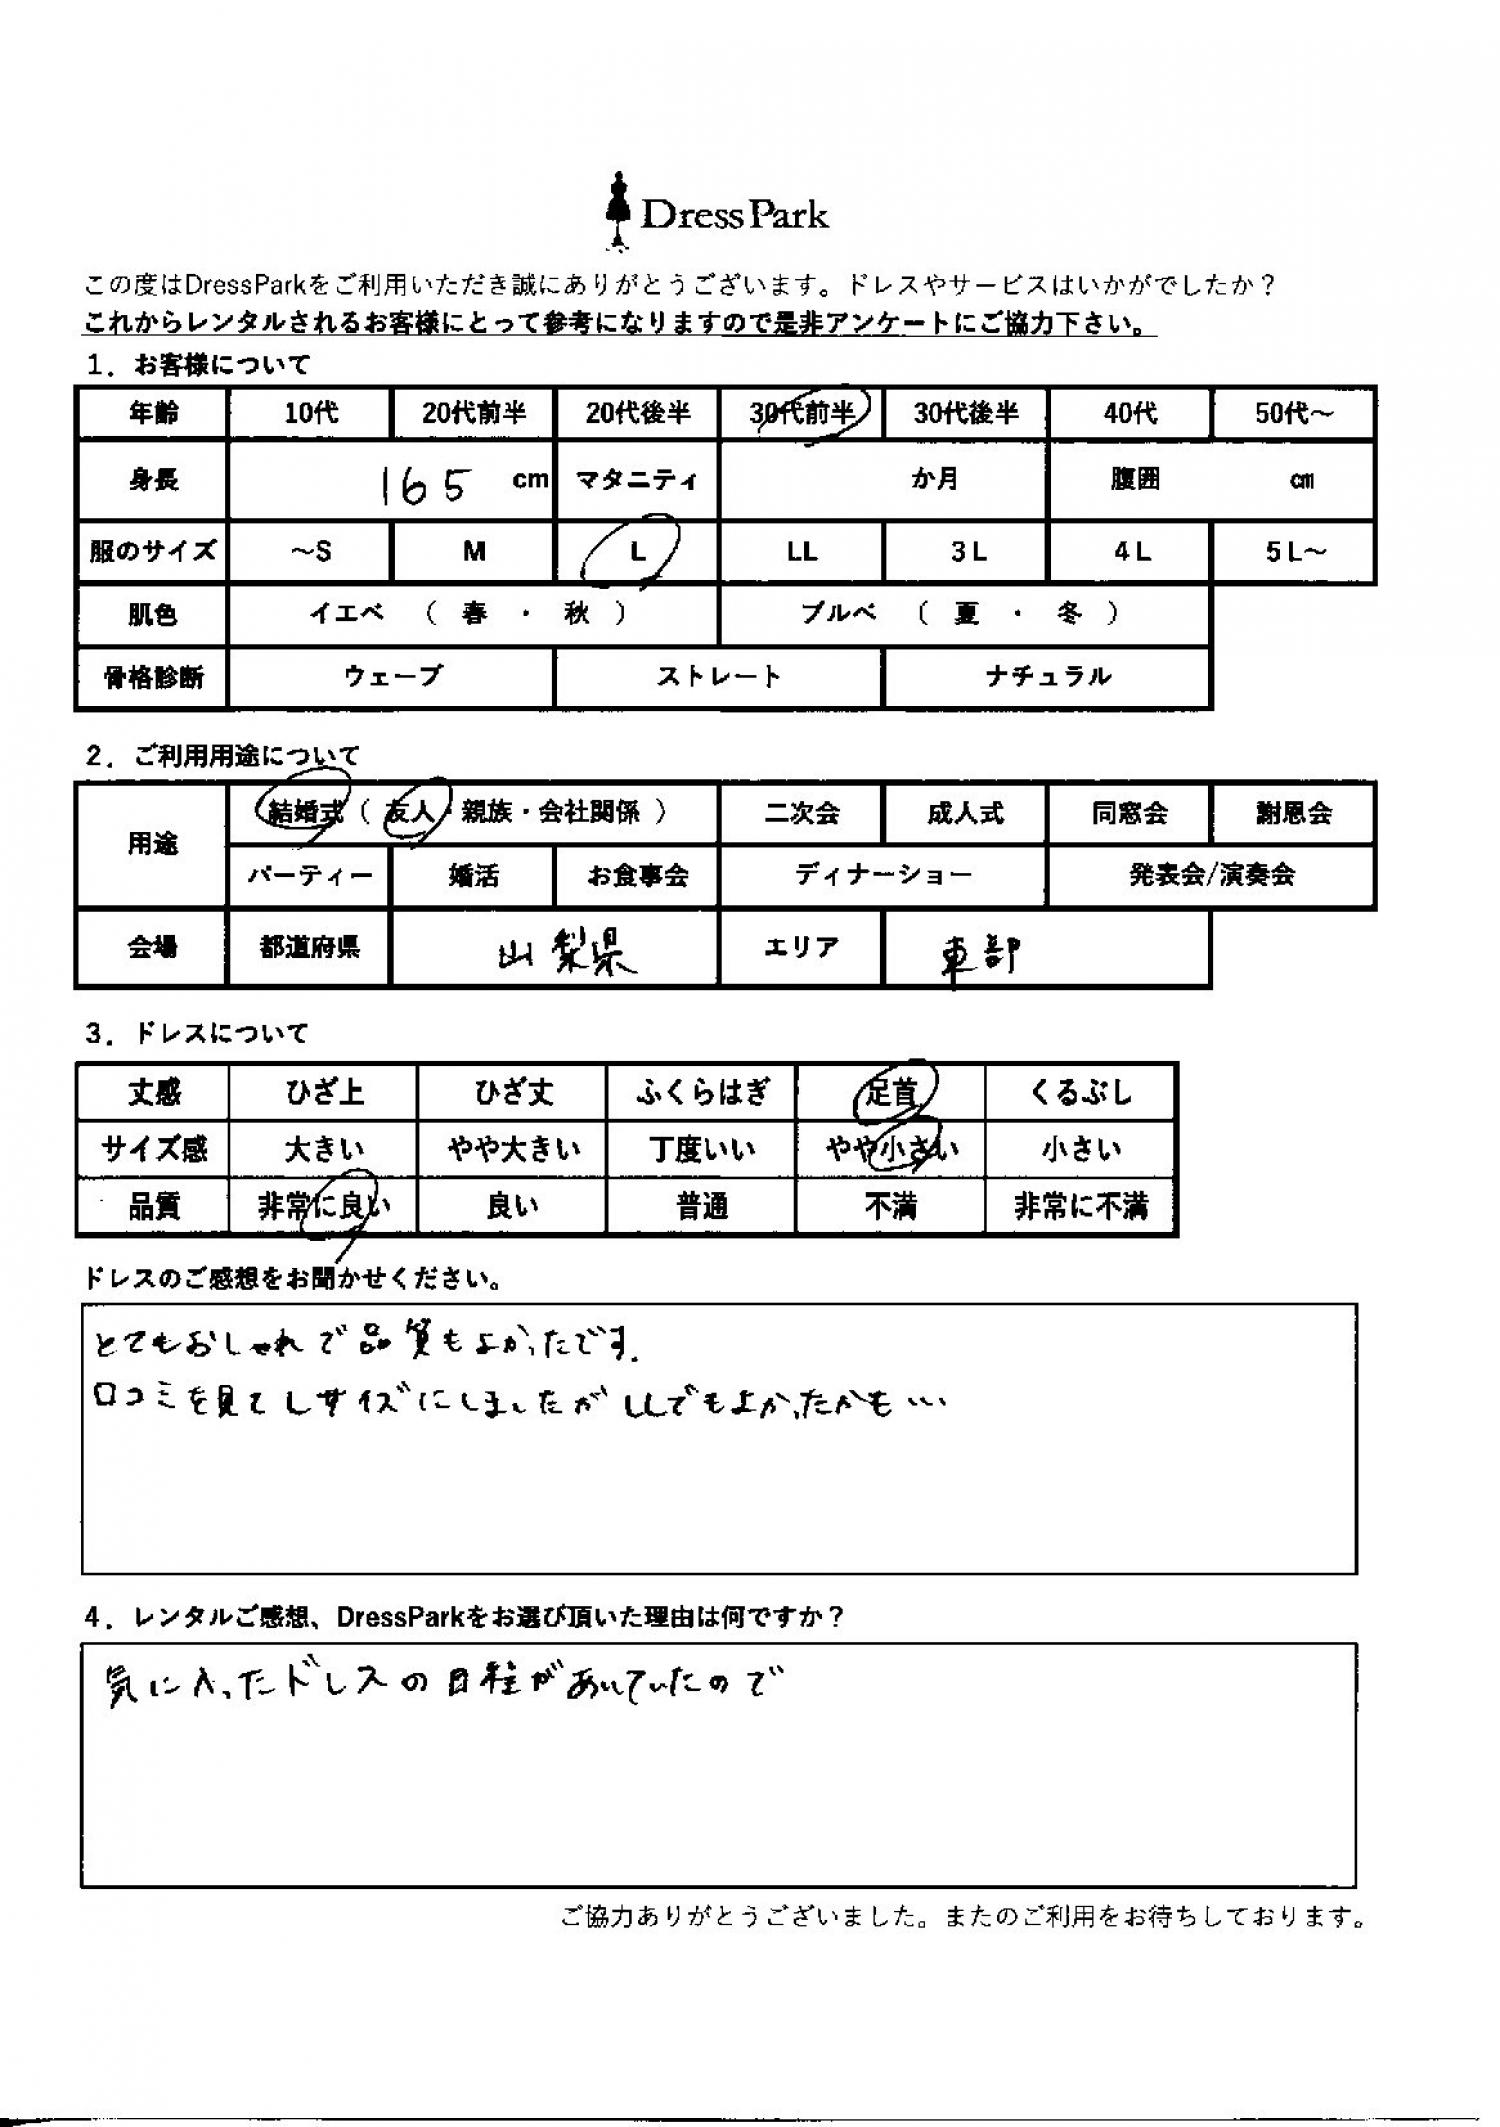 DressPark
この度はDressParkをご利用いただき誠にありがとうございます。ドレスやサービスはいかがでしたか？
これからレンタルされるお客様にとって参考になりますので是非アンケートにご協力下さい。
1．お客様について
年齢 10代 20代前半 20代後半 30代前半 30代後半 40代 50代～
身長 165 cm マタニティ か月 腹囲 cm
服のサイズ ～S M L LL 3L 4L 5L～
肌色 イエベ （ 春 ・ 秋 ） ブルベ （ 夏 ・ 冬 ）
骨格診断 ウェーブ ストレート ナチュラル
2．ご利用用途について
用途 結婚式（ 友人・親族・会社関係 ） 二次会 成人式 同窓会 謝恩会
パーティー 婚活 お食事会 ディナーショー 発表会/演奏会
会場 都道府県 山梨県 エリア 東部
3．ドレスについて
丈感 ひざ上 ひざ丈 ふくらはぎ 足首 くるぶし
サイズ感 大きい やや大きい 丁度いい やや小さい 小さい
品質 非常に良い 良い 普通 不満 非常に不満
ドレスのご感想をお聞かせください。
とてもおしゃれで品質もよかったです.
口コミを見てLサイズにしましたがLLでもよかったかも…
4．レンタルご感想、DressParkをお選び頂いた理由は何ですか？
気に入ったドレスの日程があいていたので
ご協力ありがとうございました。またのご利用をお待ちしております。